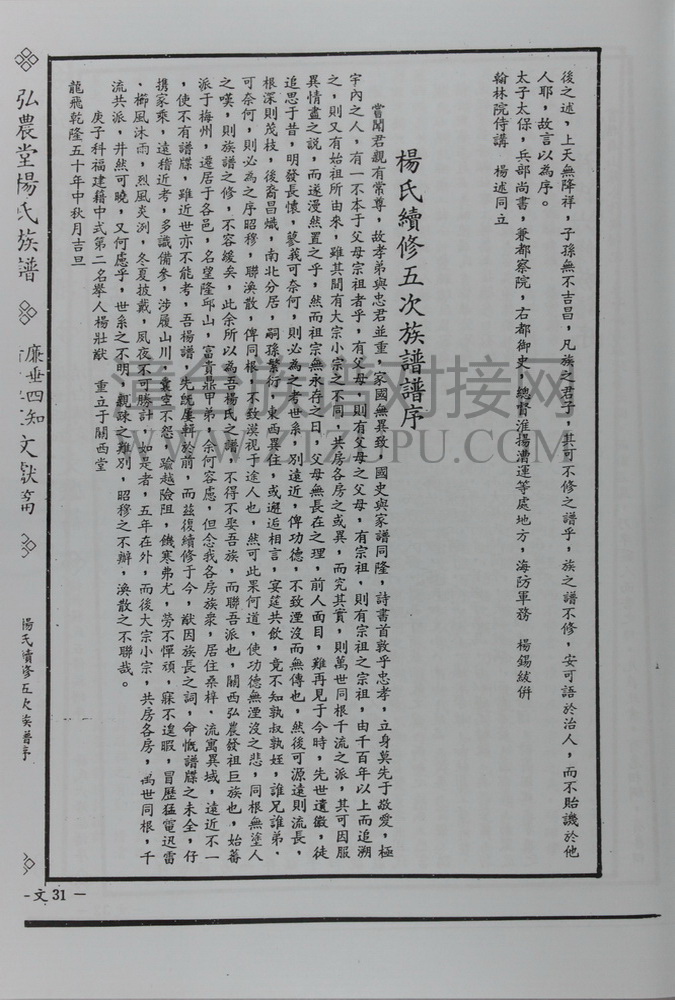 後之述，上天無降祥，子孫無不吉昌，凡族之君子，其可不修之譜乎，族之譜不修，安可語於治人，而不貽譏於他
人耶，故言以為序。
太子太保，兵部尚書，兼都察院，右都御史，總督淮揚漕運等處地方，海防軍務　楊錫紱併
翰林院侍講　楊述同立
楊氏續修五次族譜譜序
嘗聞君親有常尊，故孝弟與忠君並重，家國無異致，國史與家譜同隆，詩書首敦乎忠孝，立身莫先于敬愛，極
宇內之人，有一不本于父母宗祖者乎，有父母，則有父母之父母，有宗祖，則有宗祖之宗祖，由千百年以上而追溯
之，則又有始祖所由來，雖其間有大宗小宗之不同，共房各房之或異，而究其實，則萬世同根千流之派，其可因服
異情盡之說，而遂漫然置之乎，然而祖宗無永存之日，父母無長在之理，前人面目，難再見于今時，先世遺徽，徒
追思于昔，明發長懷，蓼莪可奈何，則必為之考世系，別遠近，俾功德，不致湮沒而無傳也，然後可源遠則流長，
根深則茂枝，後裔昌熾，南北分居，嗣孫繁衍，東西異住，或邂逅相言，宴莚共飲，竟不知孰叔孰姪，誰兄誰弟，
可奈何，則必為之序昭穆，聯渙散，俾同根，不致漠視于途人也，然可此果何道，使功德無湮沒之悲，同根無塗人
之嘆，則族譜之修，不容緩矣，此余所以為吾楊氏之譜，不得不娶吾族，而聯吾派也，關西弘農發祖巨族也，始蕃
派于梅州，遷居于各邑，名望隆邱山，富貴鼎甲弟，余何容慮，但念我各房族衆，居住桑梓，流寓異域，遠近不一
，使不有譜牒，雖近世亦不能考，吾楊譜，先既屢輯於前，而茲復續修于今，猷因族長之詞，命慨譜牒之未全，仔
携家乘，遠稽近考，多識備參，涉履山川，囊空不怨，踰越險阻，饑寒弗尤，勞不憚頑，寐不遑暇，冒歷猛電迅雷
，櫛風沐雨，烈風炎冽，冬夏披戴，夙夜不可勝計，如是者，五年在外，而後大宗小宗，共房各房，萬世同根，千
流共派，井然可曉，又何慮乎，世系之不明，親疎之難別，昭穆之不辦，渙散之不聯哉。
庚子科福建籍中式第二名舉人楊壯猷　重立于關西堂
龍飛乾隆五十年中秋月吉旦
弘農堂楊氏族譜
廉垂四知
文獻篇
楊氏續修五次族譜序
-文31-
漳州族谱对接网
WWW.ZZZUPU.COM